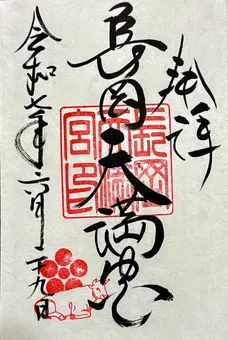 奉拝
長岡天満宮
令和七年六月二十九日
長岡天満宮印